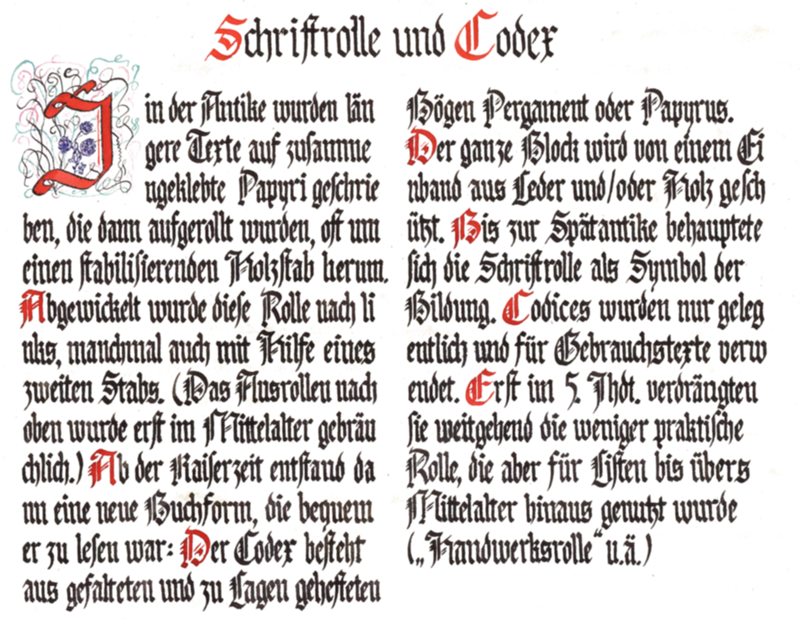 Schriftrolle und Codex
in der Antike wurden län
gere Texte auf zusamme
ngeklebte Papyri geschrie
ben, die dann aufgerollt wurden, oft um
einen stabilisierenden Holzstab herum.
Abgewickelt wurde diese Rolle nach li
nks, manchmal auch mit Hilfe eines
zweiten Stabs. (Das Ausrollen nach
oben wurde erst im Mittelalter gebräu
chlich.) Ab der Kaiserzeit entstand da
nn eine neue Buchform, die bequem
er zu lesen war: Der Codex besteht
aus gefalteten und zu Lagen gehefteten
Bögen Pergament oder Papyrus.
Der ganze Block wird von einem Ei
nband aus Leder und/oder Holz gesch
ützt. Bis zur Spätantike behauptete
sich die Schriftrolle als Symbol der
Bildung. Codices wurden nur geleg
entlich und für Gebrauchstexte verw
endet. Erst im 5. Jhdt. verdrängten
sie weitgehend die weniger praktische
Rolle, die aber für Listen bis übers
Mittelalter hinaus genutzt wurde
(„Handwerksrolle“ u.ä.)